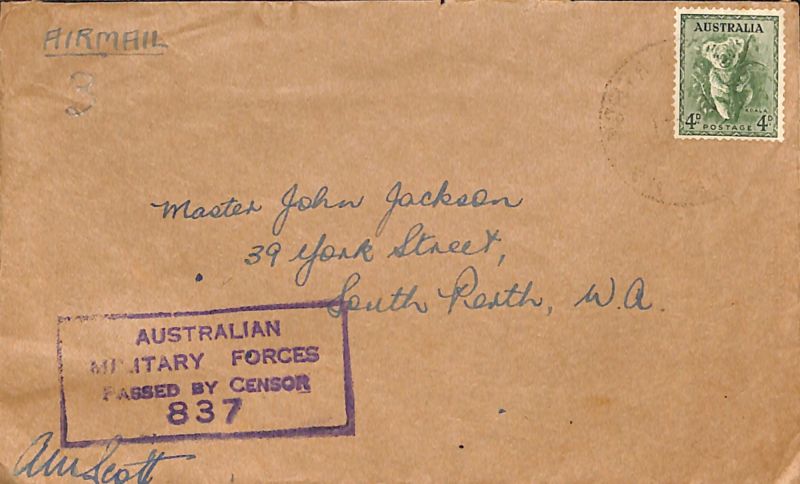 AIRMAIL
AUSTRALIA
KOALA
4D POSTAGE 4D
Master John Jackson
39 York Street,
South Perth, W.A.
AUSTRALIAN
MILITARY FORCES
PASSED BY CENSOR
837
Scott